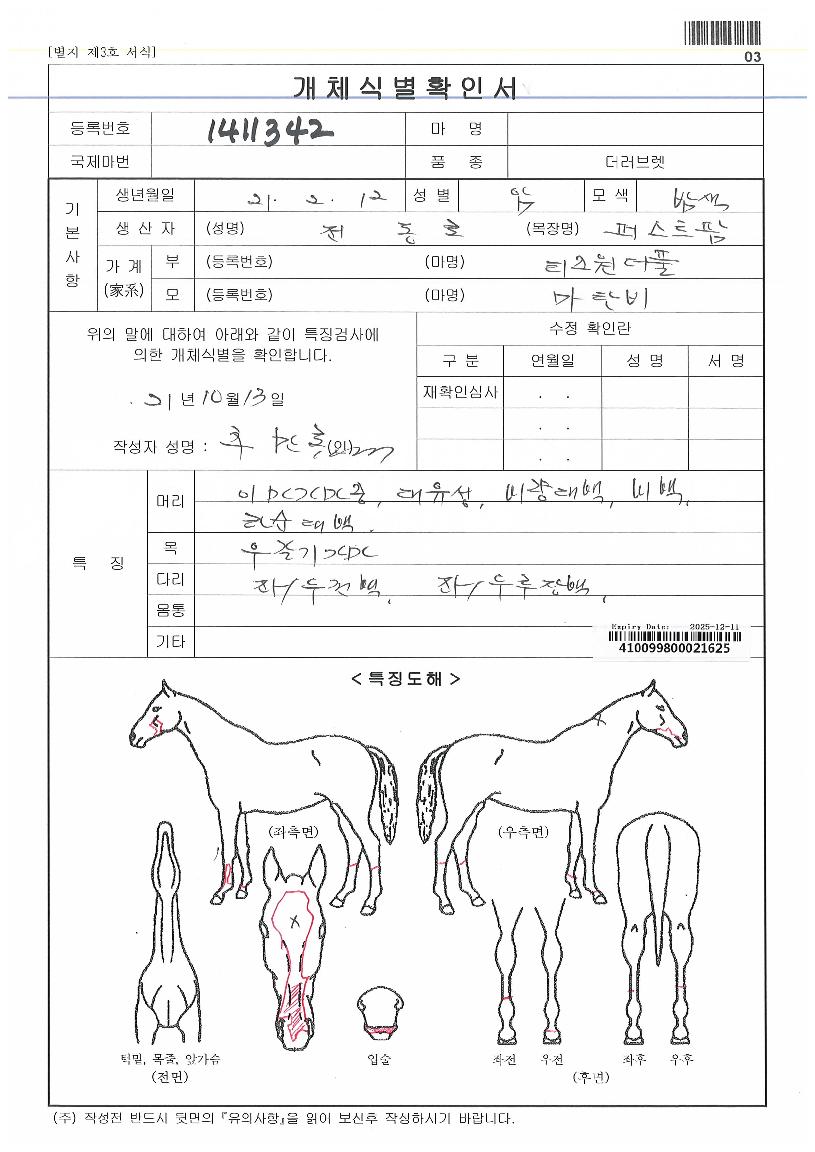 [별지 제3호 서식]
03
개체식별확인서
등록번호 1411342 마 명
국제마번 품 종 더러브렛
기본사항
생년월일 21. 2. 12 성별 암 모색 밤색
생산자 (성명) 전동호 (목장명) 퍼스트팜
가계(家系) 부 (등록번호) (마명) 티즈원더풀
모 (등록번호) (마명) 마탄비
위의 말에 대하여 아래와 같이 특징검사에
의한 개체식별을 확인합니다.
21년 10월 13일
작성자 성명 : (인)
수정 확인란
구분 연월일 성명 서명
재확인심사 . .
. .
. .
특 징
머리 대유성, 비량대백, 비백,
목
다리 좌/우전백,
몸통
기타
Expiry Date: 2025-12-11
410099800021625
< 특징도해 >
(좌측면) (우측면)
턱밑, 목줄, 앞가슴
(전면)
입술
좌전 우전 좌후 우후
(후면)
(주) 작성전 반드시 뒷면의 『유의사항』을 읽어 보신후 작성하시기 바랍니다.